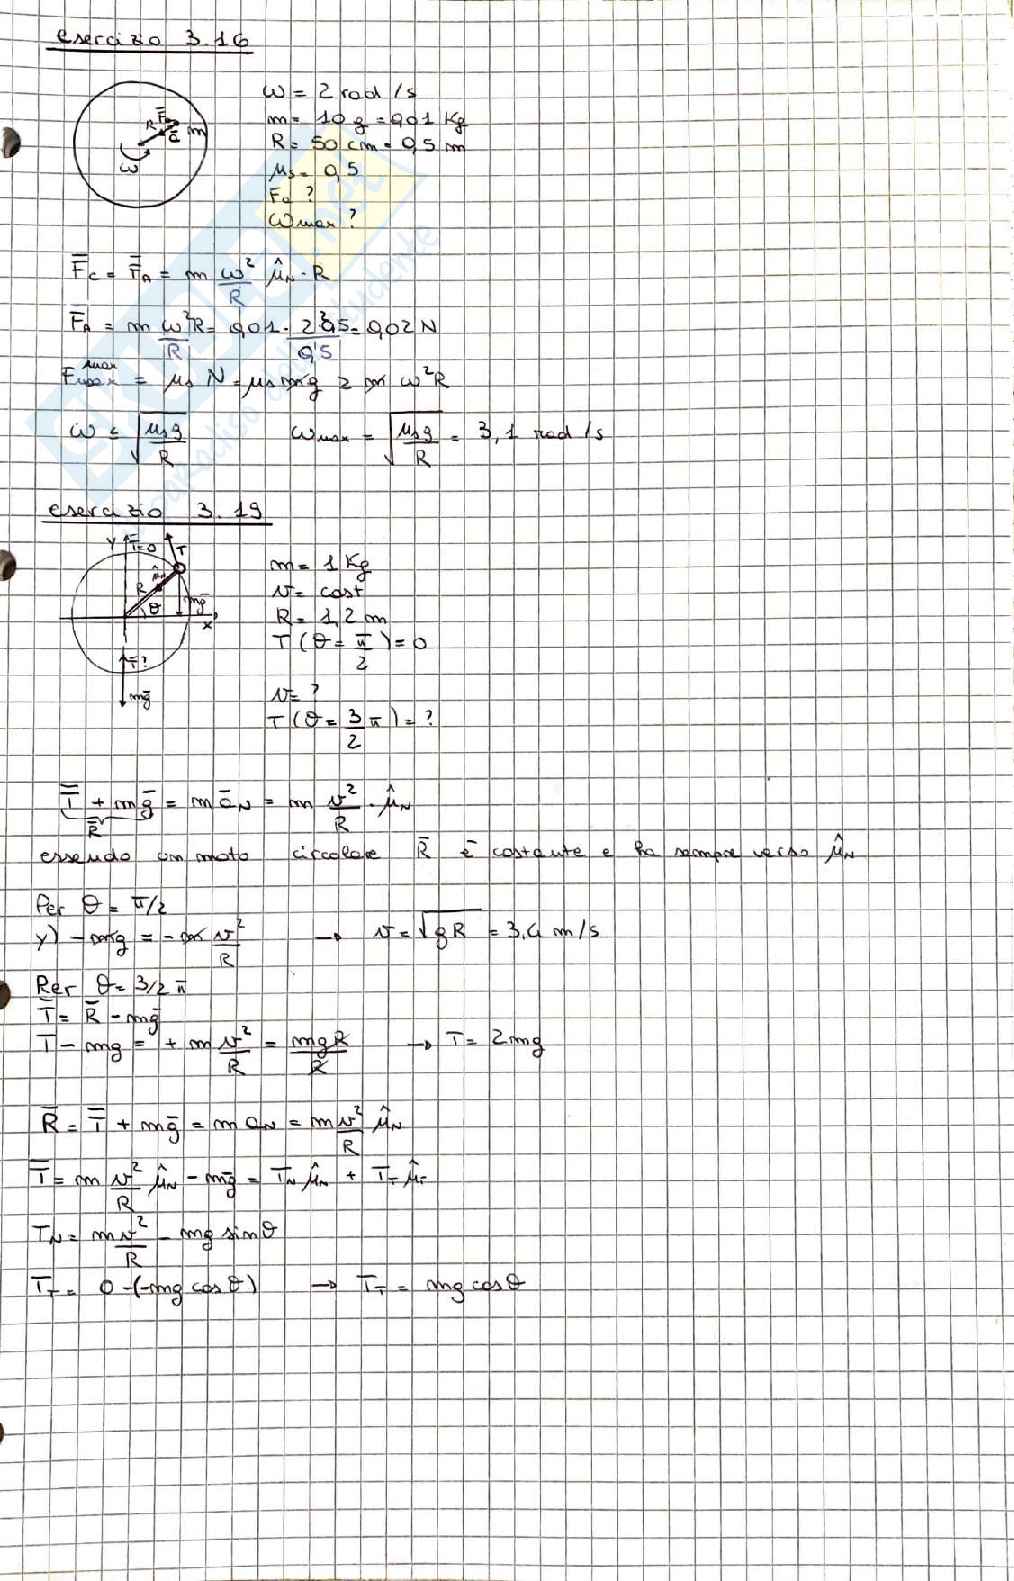 esercizio 3.16
F̄ₐ
R
c̄
m
ω
ω = 2 rad/s
m = 10 g = 0,01 Kg
R = 50 cm = 0,5 m
μs = 0,5
Fₐ ?
ωmax ?
F̄c = F̄ₐ = m ω²/R μ̂N · R
F̄ₐ = m ω²R/R = 0,01 · 2² 0,5/0,5 = 0,02 N
Fmax = μs N = μs mg ≥ m ω²R
ω ≤ √(μsg/R) ωmax = √(μsg/R) = 3,1 rad/s
esercizio 3.19
y
T=0
T
μ̂N
R
θ
mḡ
x
T?
mḡ
m = 1 Kg
v = cost
R = 1,2 m
T (θ = π/2) = 0
v = ?
T (θ = 3/2 π) = ?
T̄ + mḡ = m āN = m v²/R · μ̂N
R̄
essendo un moto circolare R̄ è costante e ha sempre verso μ̂N
Per θ = π/2
y) -mg = -m v²/R → v = √gR = 3,4 m/s
Per θ = 3/2 π
T̄ = R̄ - mḡ
T - mg = + m v²/R = mgR/R → T = 2mg
R̄ = T̄ + mḡ = m aN = m v²/R μ̂N
T̄ = m v²/R μ̂N - mḡ = TN μ̂N + TT μ̂T
TN = m v²/R - mg sinθ
TT = 0 - (-mg cosθ) → TT = mg cosθ